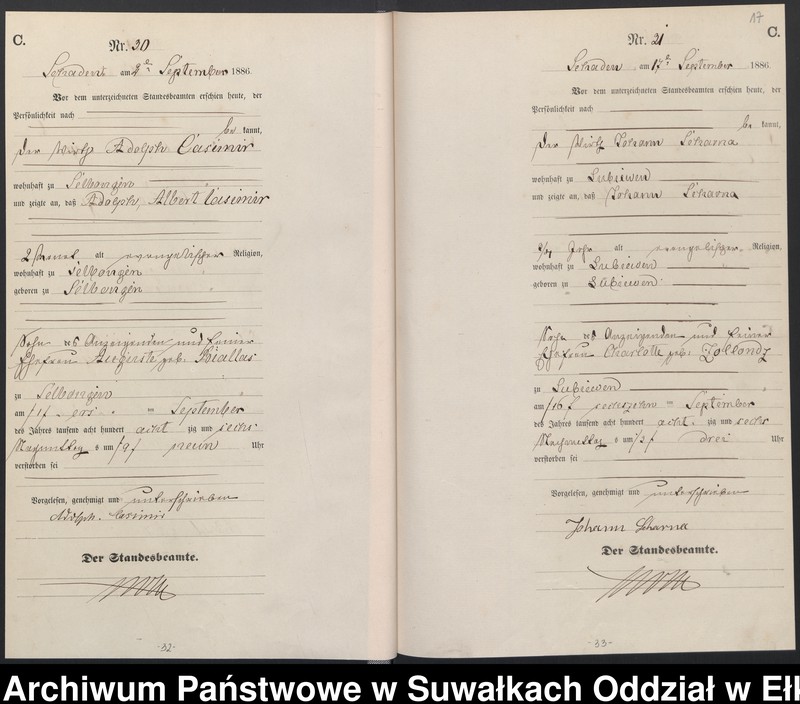 C.
Nr. 20
Schaden am 2ten September 1886.
Vor dem unterzeichneten Standesbeamten erschien heute, der
Persönlichkeit nach
be kannt,
der Wirth Adolph Casimir
wohnhaft zu Selbongen
und zeigte an, daß Adolph, Albert Casimir
alt evangelischer Religion,
wohnhaft zu Selbongen
geboren zu Selbongen
Sohn des Anzeigenden und seiner
Ehefrau Auguste geb: Biallas
zu Selbongen
am /1/ ersten September
des Jahres tausend acht hundert acht zig und sechs
Nachmittag s um /9/ neun Uhr
verstorben sei
Vorgelesen, genehmigt und unterschrieben
Adolph. Casimir
Der Standesbeamte.
-32-
17
C.
Nr. 21
Schaden am 17e September 1886.
Vor dem unterzeichneten Standesbeamten erschien heute, der
Persönlichkeit nach
be kannt,
der Wirth Johann Scharna
wohnhaft zu Lubiewen
und zeigte an, daß Johann Scharna
Jahr alt evangelischer Religion,
wohnhaft zu Lubiewen
geboren zu Lubiewen
Sohn des Anzeigenden und seiner
Ehefrau Charlotte geb:
zu Lubiewen
am /16/ sechszehn September
des Jahres tausend acht hundert acht zig und sechs
Nachmittag s um /3/ drei Uhr
verstorben sei
Vorgelesen, genehmigt und unterschrieben
Johann Scharna
Der Standesbeamte.
-33-
Archiwum Państwowe w Suwałkach Oddział w Ełk